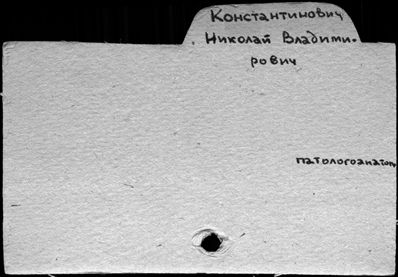 Константинович
Николай Владими-
рович
патологоанатом